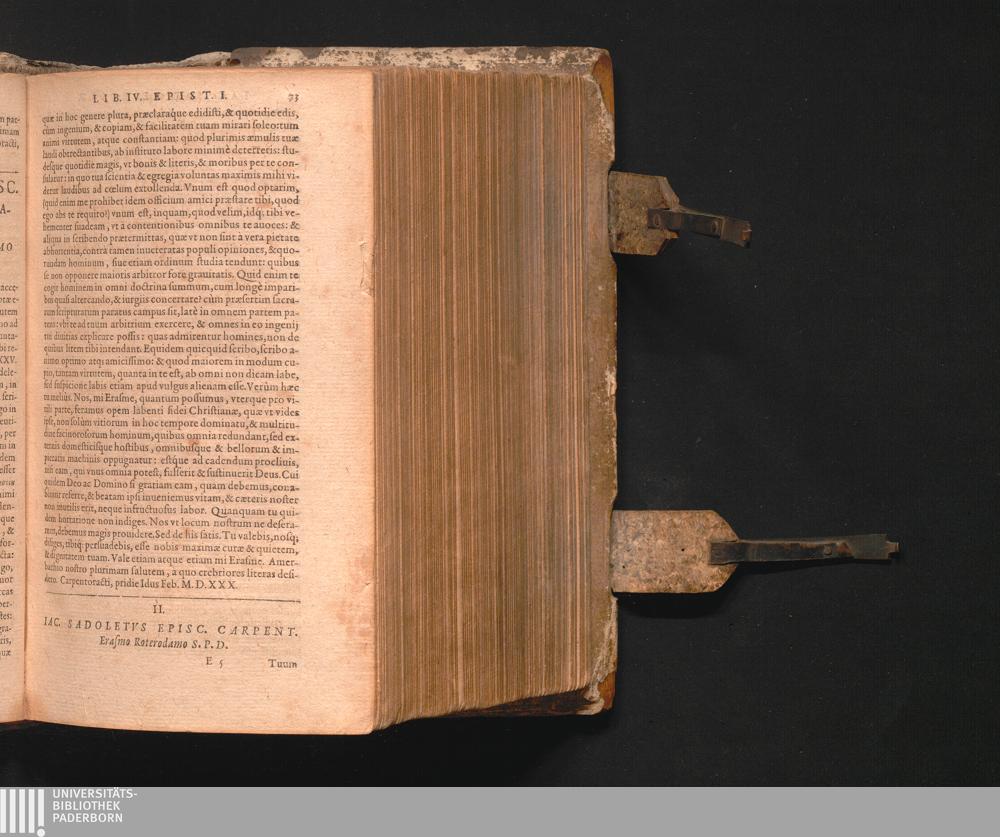 LIB. IV. EPIST. I. 73
quæ in hoc genere plura, præclaraque edidisti, & quotidie edis,
cùm ingenium, & copiam, & facilitatem tuam mirari soleo: tum
animi virtutem, atque constantiam: quod plurimis æmulis tuæ
laudi obtrectantibus, ab instituto labore minimè deterreris: stu-
desque quotidie magis, vt bonis & literis, & moribus per te con-
sulatur: in quo tua scientia & egregia voluntas maximis mihi vi-
detur laudibus ad cœlum extollenda. Vnum est quod optarim,
(quid enim me prohibet idem officium amici præstare tibi, quod
ego abs te requiro?) vnum est, inquam, quod velim, idq; tibi ve-
hementer suadeam, vt à contentionibus omnibus te auoces: &
aliqua in scribendo prætermittas, quæ vt non sint à vera pietate
abhorrentia, contra tamen inueteratas populi opiniones, & quo-
rundam hominum, siue etiam ordinum studia tendunt: quibus
se non opponere maioris arbitror fore grauitatis. Quid enim te
cogit hominem in omni doctrina summum, cum longè impari-
bus quasi altercando, & iurgiis concertare? cùm præsertim sacra-
rum scripturarum paratus campus sit, latè in omnem partem pa-
tens: vbi te ad tuum arbitrium exercere, & omnes in eo ingenij
tui diuitias explicare possis: quas admirentur homines, non de
quibus litem tibi intendant. Equidem quicquid scribo, scribo a-
nimo optimo atq; amicissimo: & quod maiorem in modum cu-
pio, tantam virtutem, quanta in te est, ab omni non dicam labe,
sed suspicione labis etiam apud vulgus alienam esse. Verùm hæc
tu meliùs. Nos, mi Erasme, quantum possumus, vterque pro vi-
rili parte, feramus opem labenti fidei Christianæ, quæ vt vides
ipse, non solùm vitiorum in hoc tempore dominatu, & multitu-
dine facinorosorum hominum, quibus omnia redundant, sed ex-
ternis domesticisque hostibus, omnibusque & bellorum & im-
pietatis machinis oppugnatur: estque ad cadendum procliuis,
nisi eam, qui vnus omnia potest, fulserit & sustinuerit Deus. Cui
quidem Deo ac Domino si gratiam eam, quam debemus, cona-
bimur referre, & beatam ipsi inueniemus vitam, & cæteris noster
non inutilis erit, neque infructuosus labor. Quanquam tu qui-
dem hortatione non indiges. Nos vt locum nostrum ne desera-
mus, debemus magis prouidere. Sed de his satis. Tu valebis, nosq;
diliges, tibiq; persuadebis, esse nobis maximæ curæ & quietem,
& dignitatem tuam. Vale etiam atque etiam mi Erasme. Amer-
bachio nostro plurimam salutem, a quo crebriores literas desi-
dero. Carpentoracti, pridie Idus Feb. M.D.XXX.
II.
IAC. SADOLETVS EPISC. CARPENT.
Erasmo Roterodamo S.P.D.
E 5 Tuum
UNIVERSITÄTS-
BIBLIOTHEK
PADERBORN